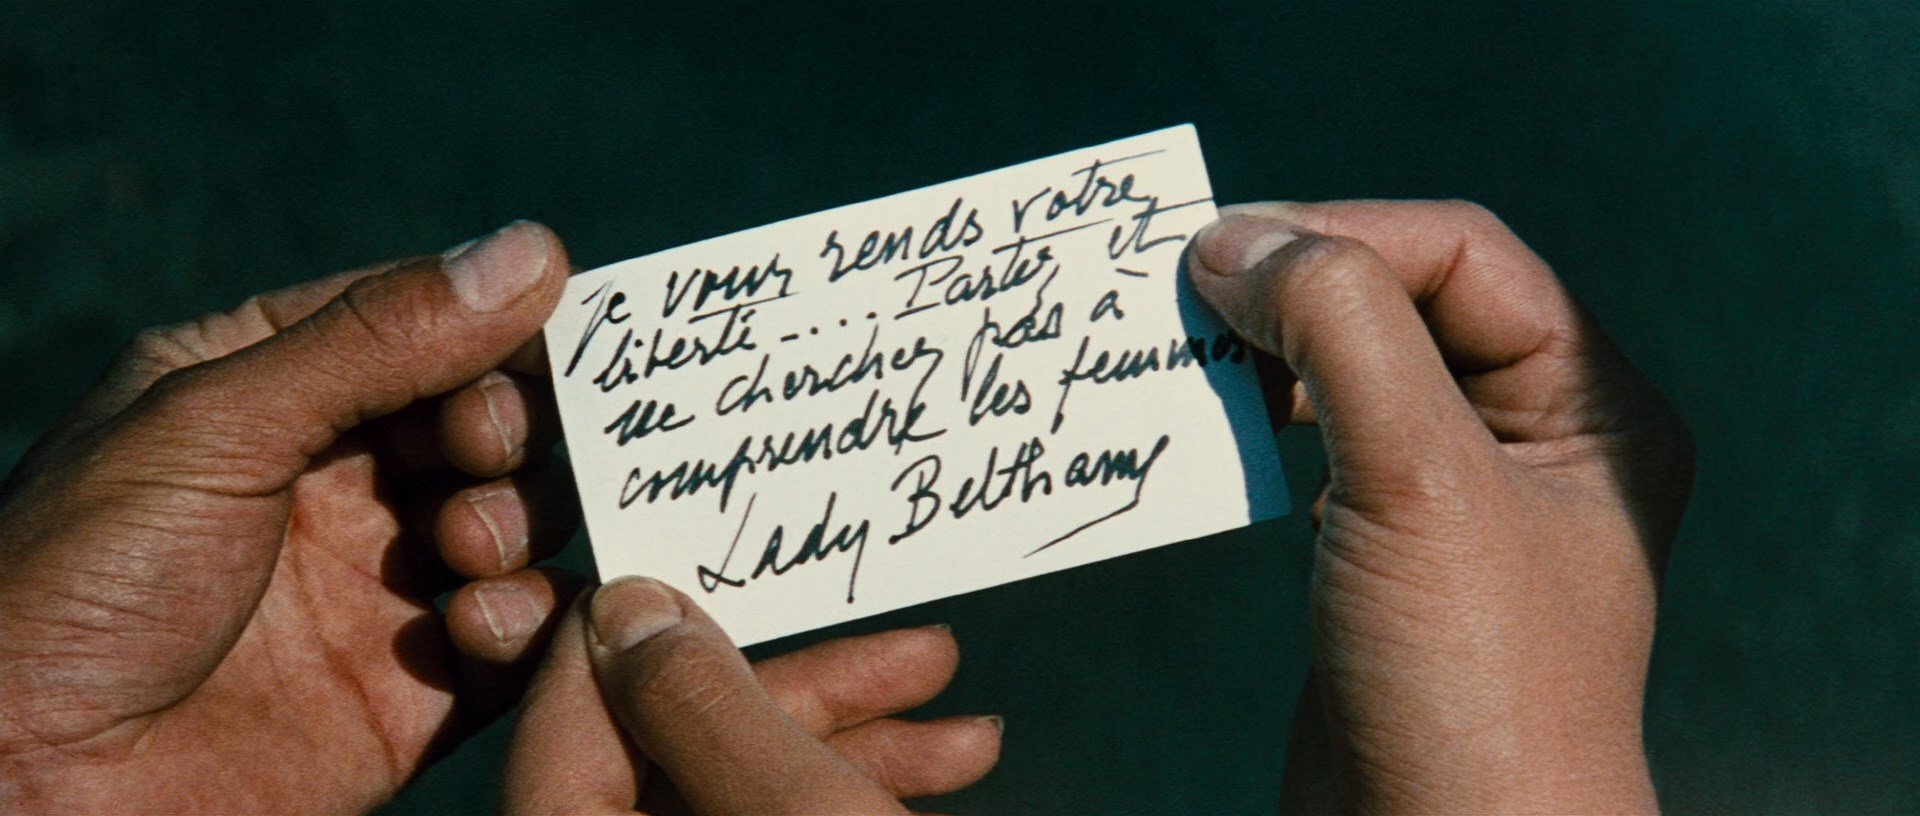 Je vous rends votre
liberté.... Partez et
ne cherchez pas à
comprendre les femmes
Lady Beltham